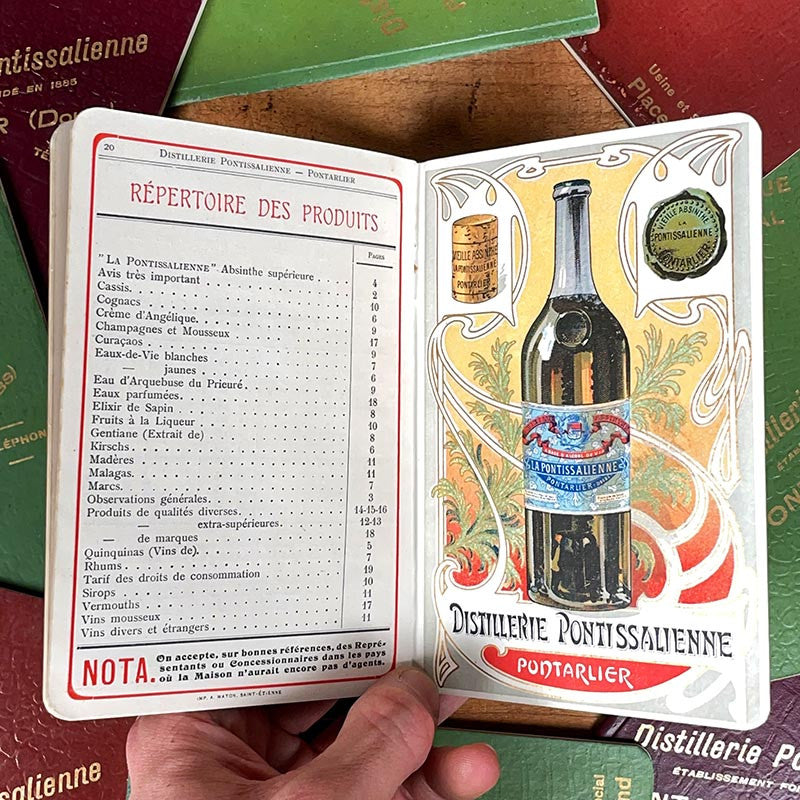 ntissalienne
DE EN 1885
R (Do
TÉ
Usine et s
Place
20
DISTILLERIE PONTISSALIENNE — PONTARLIER
RÉPERTOIRE DES PRODUITS
PAGES
"LA PONTISSALIENNE" Absinthe supérieure . . . 4
Avis très important . . . 2
Cassis. . . . 10
Cognacs . . . 6
Crème d'Angélique. . . . 9
Champagnes et Mousseux . . . 17
Curaçaos . . . 9
Eaux-de-Vie blanches . . . 7
— jaunes . . . 6
Eau d'Arquebuse du Prieuré . . . 9
Eaux parfumées. . . . 18
Elixir de Sapin . . . 8
Fruits à la Liqueur . . . 10
Gentiane (Extrait de) . . . 8
Kirschs . . . 6
Madères . . . 11
Malagas. . . . 11
Marcs. . . . 7
Observations générales . . . 3
Produits de qualités diverses. . . . 14-15-16
— extra-supérieures. . . . 12-13
— de marques . . . 18
Quinquinas (Vins de). . . . 5
Rhums . . . 7
Tarif des droits de consommation . . . 19
Sirops . . . 10
Vermouths . . . 11
Vins mousseux . . . 17
Vins divers et étrangers . . . 11
NOTA. On accepte, sur bonnes références, des Repré-
sentants ou Concessionnaires dans les pays
où la Maison n'aurait encore pas d'agents.
IMP. A. WATON, SAINT-ÉTIENNE
VIEILLE ABSINTHE
LA PONTISSALIENNE
PONTARLIER
VIEILLE ABSINTHE
LA PONTISSALIENNE
PONTARLIER
A BASE D'ALCOOL DE VIN
LA PONTISSALIENNE
PONTARLIER
DISTILLERIE PONTISSALIENNE
PONTARLIER
LÉPHON
salienne
Distillerie Po
ÉTABLISSEMENT FO
cial
nd